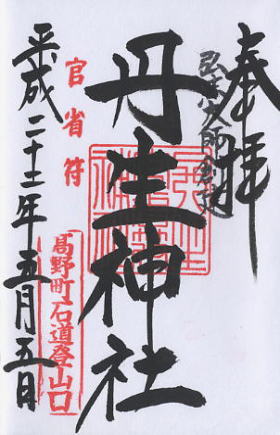 奉拝
弘法大師創建
丹生神社
官省符
高野町石道登山口
平成二十二年五月五日